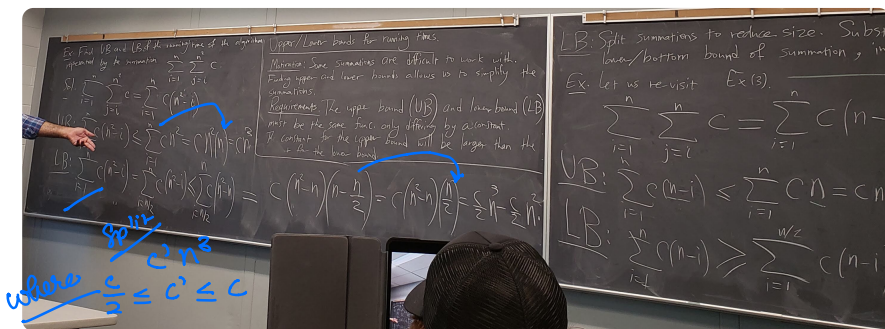 Ex. Find UB and LB of the running time of the algorithm
represented by the summation \sum_{i=1}^{n} \sum_{j=i}^{n^2} c
Sol. \sum_{i=1}^{n} \sum_{j=i}^{n^2} c = \sum_{i=1}^{n} c(n^2-i)
UB: \sum_{i=1}^{n} c(n^2-i) ≤ \sum_{i=1}^{n} c n^2 = c n^2(n) = c n^3
LB: \sum_{i=1}^{n} c(n^2-i) = \sum_{i=n/2} c(n^2-i) ≤ \sum_{i=n/2}^{n} c(n^2-n) = c(n^2-n)(n-\frac{n}{2}) = c(n^2-n)(\frac{n}{2}) = \frac{c}{2}n^3 - \frac{c}{2}n^2.
split
c' n^3
where \frac{c}{2} ≤ c' ≤ c
Upper/Lower bands for running times.
Motivation: Some summations are difficult to work with.
Finding upper and lower bounds allows us to simplify the
summations.
Requirements: The upper bound (UB) and lower bound (LB)
must be the same func. only differing by a constant
constant for the upper bound will be larger than the
the lower bound
LB: Split summations to reduce size. Subst
lower/bottom bound of summation,
Ex. Let us re-visit Ex(3).
\sum_{i=1}^{n} \sum_{j=i}^{n} c = \sum_{i=1}^{n} c(n-
UB: \sum_{i=1}^{n} c(n-i) ≤ \sum_{i=1}^{n} cn = cn
LB: \sum_{i=1}^{n} c(n-i) ≥ \sum_{i=1}^{n/2} c(n-i